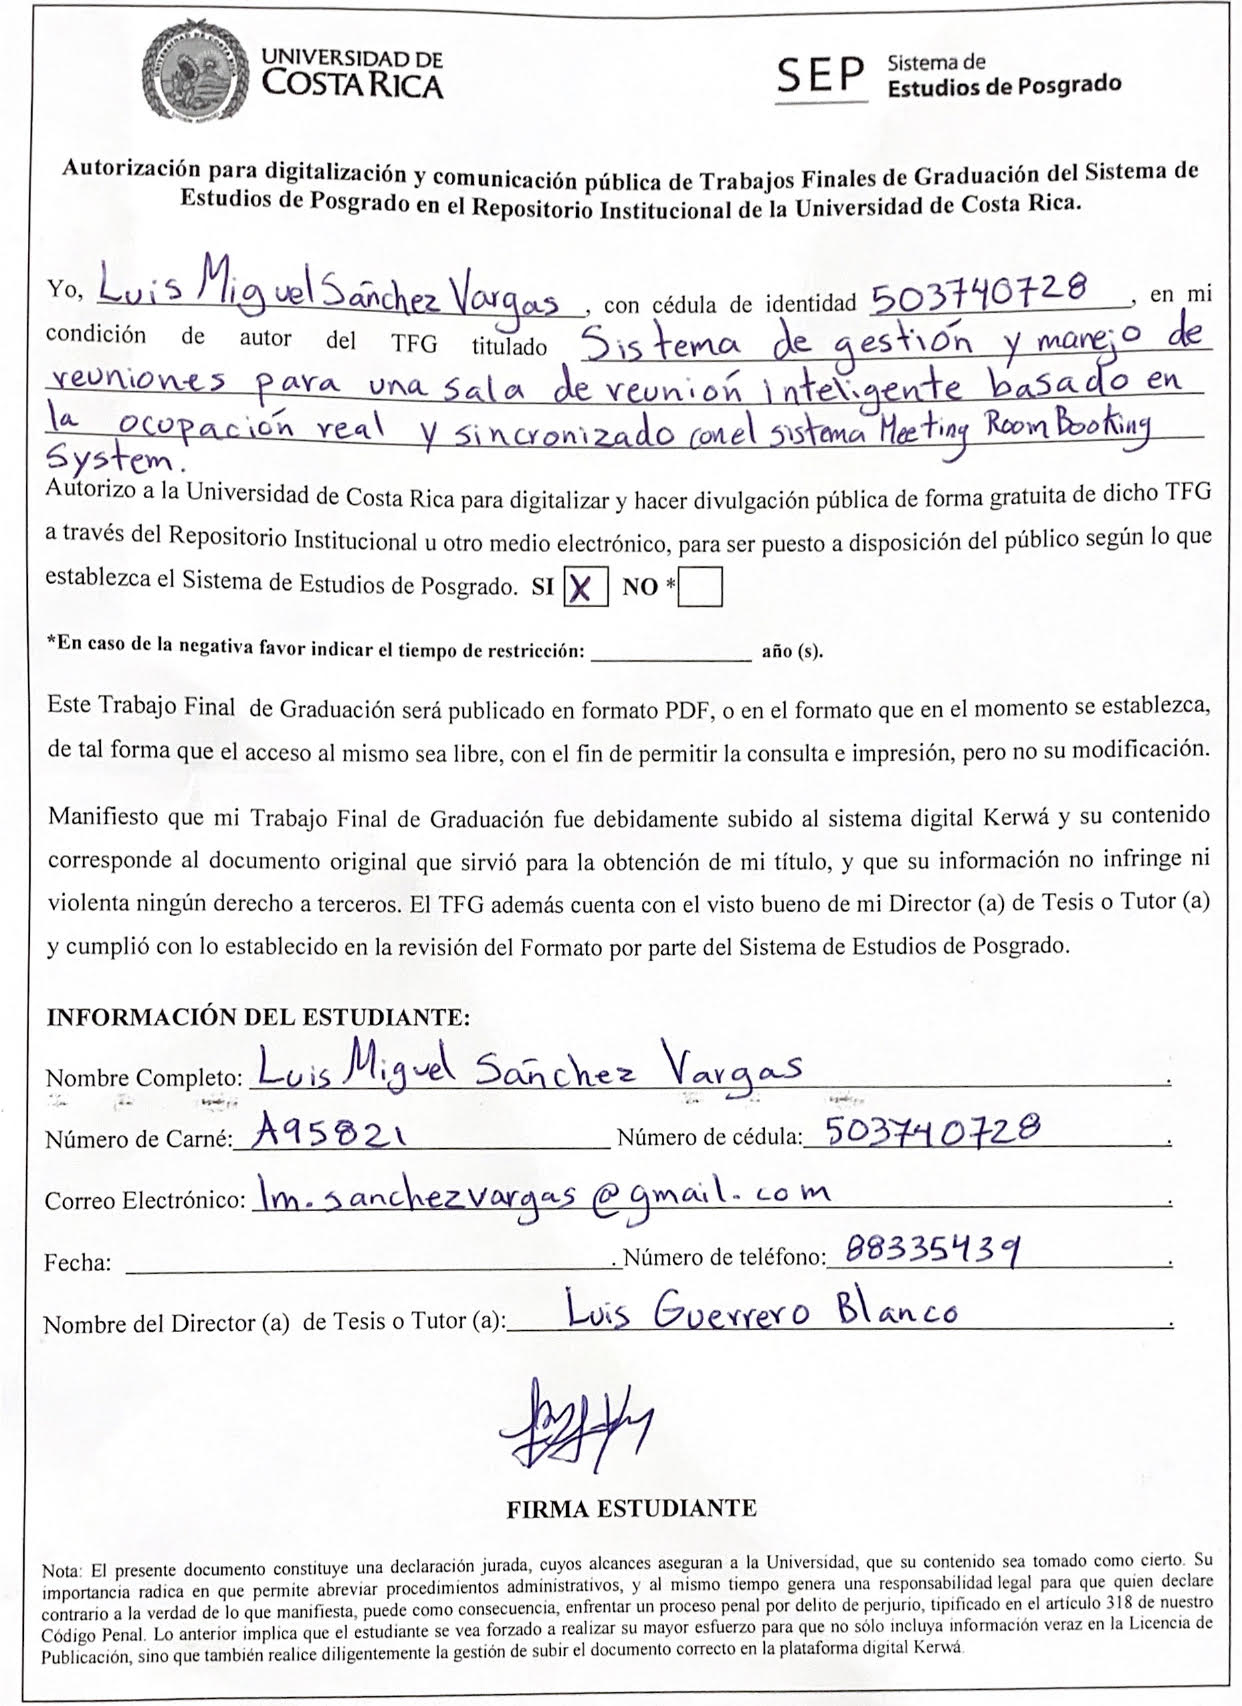 UNIVERSIDAD DE
COSTA RICA
SEP
Sistema de
Estudios de Posgrado
Autorización para digitalización y comunicación pública de Trabajos Finales de Graduación del Sistema de
Estudios de Posgrado en el Repositorio Institucional de la Universidad de Costa Rica.
Yo, Luis Miguel Sánchez Vargas, con cédula de identidad 503740728, en mi
condición de autor del TFG titulado Sistema de gestión y manejo de
reuniones para una sala de reunión inteligente basado en
la ocupación real y sincronizado con el sistema Meeting Room Booking
System.
Autorizo a la Universidad de Costa Rica para digitalizar y hacer divulgación pública de forma gratuita de dicho TFG
a través del Repositorio Institucional u otro medio electrónico, para ser puesto a disposición del público según lo que
establezca el Sistema de Estudios de Posgrado. SI X NO *
*En caso de la negativa favor indicar el tiempo de restricción: ____________ año (s).
Este Trabajo Final de Graduación será publicado en formato PDF, o en el formato que en el momento se establezca,
de tal forma que el acceso al mismo sea libre, con el fin de permitir la consulta e impresión, pero no su modificación.
Manifiesto que mi Trabajo Final de Graduación fue debidamente subido al sistema digital Kerwá y su contenido
corresponde al documento original que sirvió para la obtención de mi título, y que su información no infringe ni
violenta ningún derecho a terceros. El TFG además cuenta con el visto bueno de mi Director (a) de Tesis o Tutor (a)
y cumplió con lo establecido en la revisión del Formato por parte del Sistema de Estudios de Posgrado.
INFORMACIÓN DEL ESTUDIANTE:
Nombre Completo: Luis Miguel Sánchez Vargas.
Número de Carné: A95821 Número de cédula: 503740728.
Correo Electrónico: lm.sanchezvargas@gmail.com.
Fecha: ____________. Número de teléfono: 88335439.
Nombre del Director (a) de Tesis o Tutor (a): Luis Guerrero Blanco.
FIRMA ESTUDIANTE
Nota: El presente documento constituye una declaración jurada, cuyos alcances aseguran a la Universidad, que su contenido sea tomado como cierto. Su
importancia radica en que permite abreviar procedimientos administrativos, y al mismo tiempo genera una responsabilidad legal para que quien declare
contrario a la verdad de lo que manifiesta, puede como consecuencia, enfrentar un proceso penal por delito de perjurio, tipificado en el artículo 318 de nuestro
Código Penal. Lo anterior implica que el estudiante se vea forzado a realizar su mayor esfuerzo para que no sólo incluya información veraz en la Licencia de
Publicación, sino que también realice diligentemente la gestión de subir el documento correcto en la plataforma digital Kerwá.